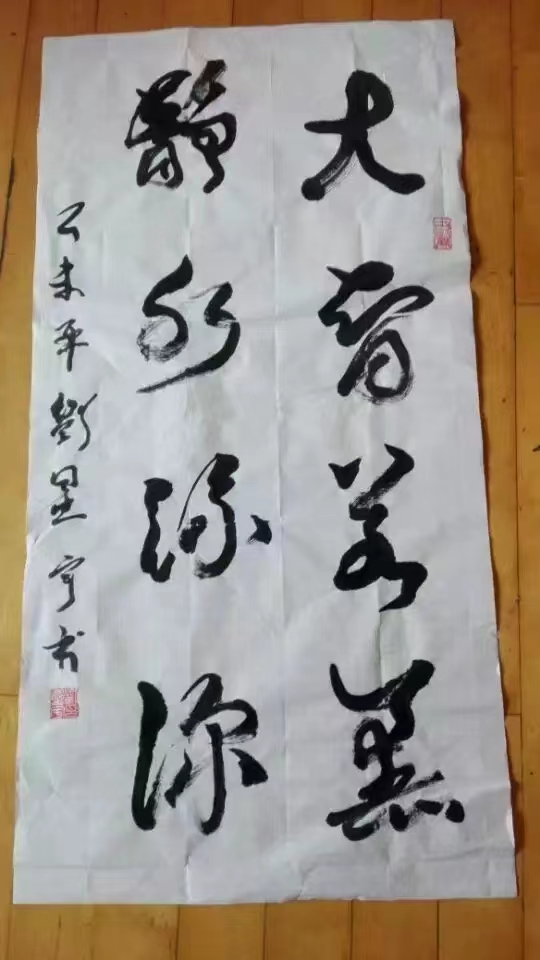 大智若愚
靜水流深
乙未年劉星书